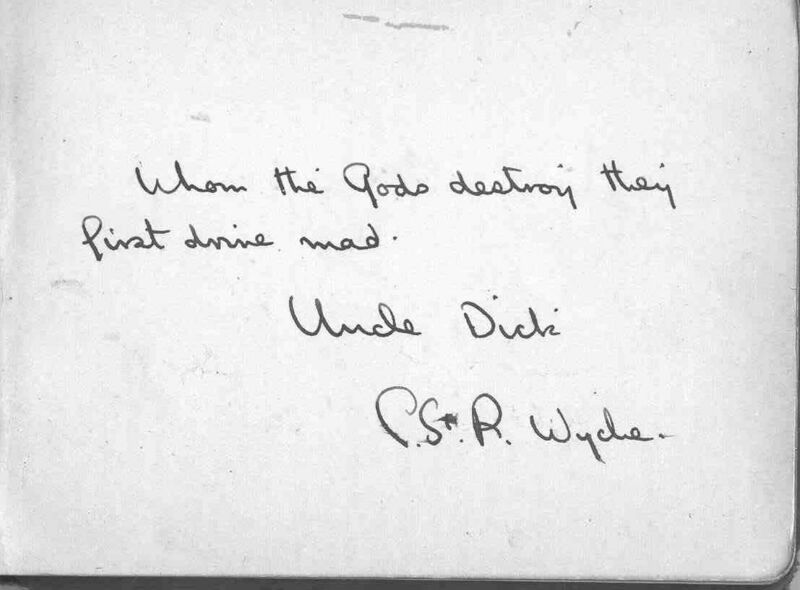 Whom the Gods destroy they
first drive mad.
Uncle Dick
P. St. R. Wyche.